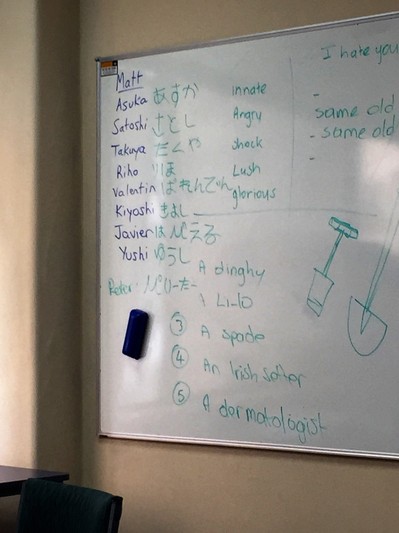 Matt
Asuka あすか innate
Satoshi さとし Angry
Takuya たくや shock
Riho りほ Lush
Valentin ばれんてぃん glorious
Kiyoshi きよし
Javier
Yushi ゆうし
Peter
I hate you
-
same old
- same old
-
A dinghy
A Li-lo
③ A spade
④ An Irish setter
⑤ A dermatologist